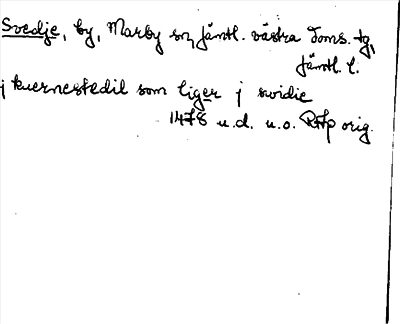 Svedje, by, Marby sn, Jämtl. västra doms. tg,
Jämtl. l.
j kuernestedil som liger j swidie
1478 u.d. u.o. RAp orig.